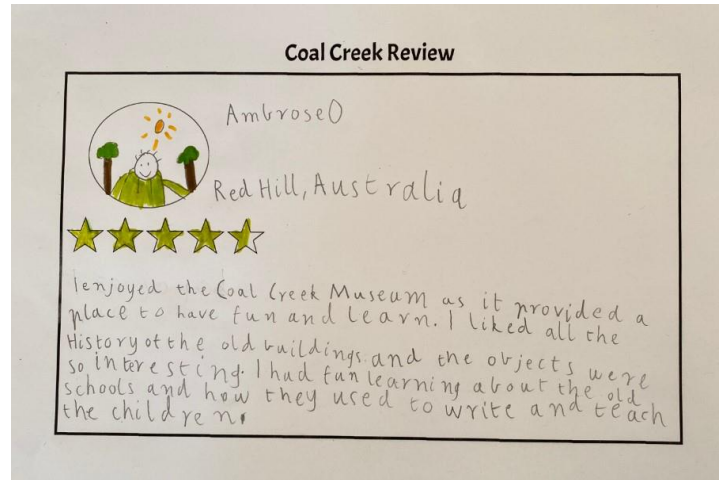 Coal Creek Review
AmbroseO
Red Hill, Australia
I enjoyed the Coal Creek Museum as it provided a
place to have fun and learn. I liked all the
History of the old buildings and the objects were
so interesting. I had fun learning about the old
schools and how they used to write and teach
the children.